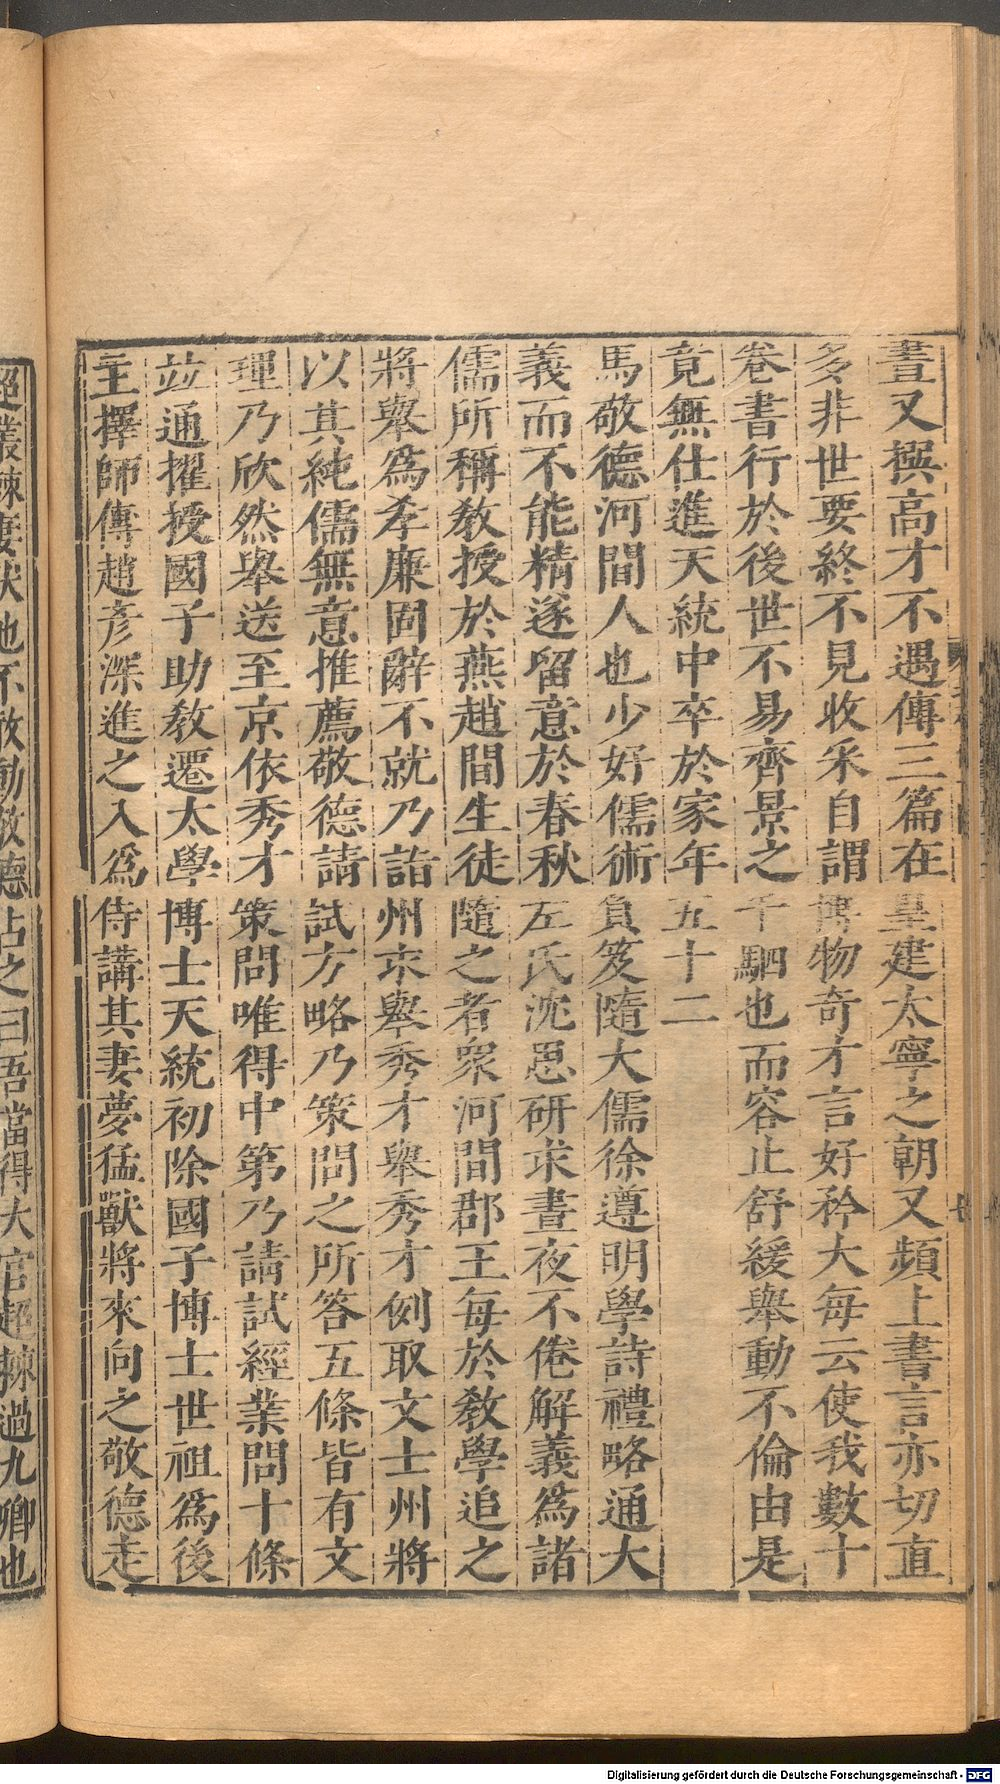 晝又撰高才不遇傳三篇在皇建太寧之朝又頻上書言亦切直
多非世要終不見收采自謂博物奇才言好矜大每云使我數十
卷書行於後世不易齊景之千駟也而容止舒緩舉動不倫由是
竟無仕進天統中卒於家年五十二
馬敬德河間人也少好儒術負笈隨大儒徐遵明學詩禮略通大
義而不能精遂留意於春秋左氏沈思研求晝夜不倦解義爲諸
儒所稱教授於燕趙間生徒隨之者衆河間郡王每於教學追之
將舉爲孝廉固辭不就乃詣州求舉秀才舉秀才例取文士州將
以其純儒無意推薦敬德請試方略乃策問之所答五條皆有文
理乃欣然舉送至京依秀才策問唯得中第乃請試經業問十條
並通擢授國子助教遷太學博士天統初除國子博士世祖爲後
主擇師傅趙彦深進之入爲侍講其妻夢猛獸將來向之敬德走
超叢棘妻伏地不敢動敬德占之曰吾當得大官超棘過九卿也
Digitalisierung gefördert durch die Deutsche Forschungsgemeinschaft - DFG